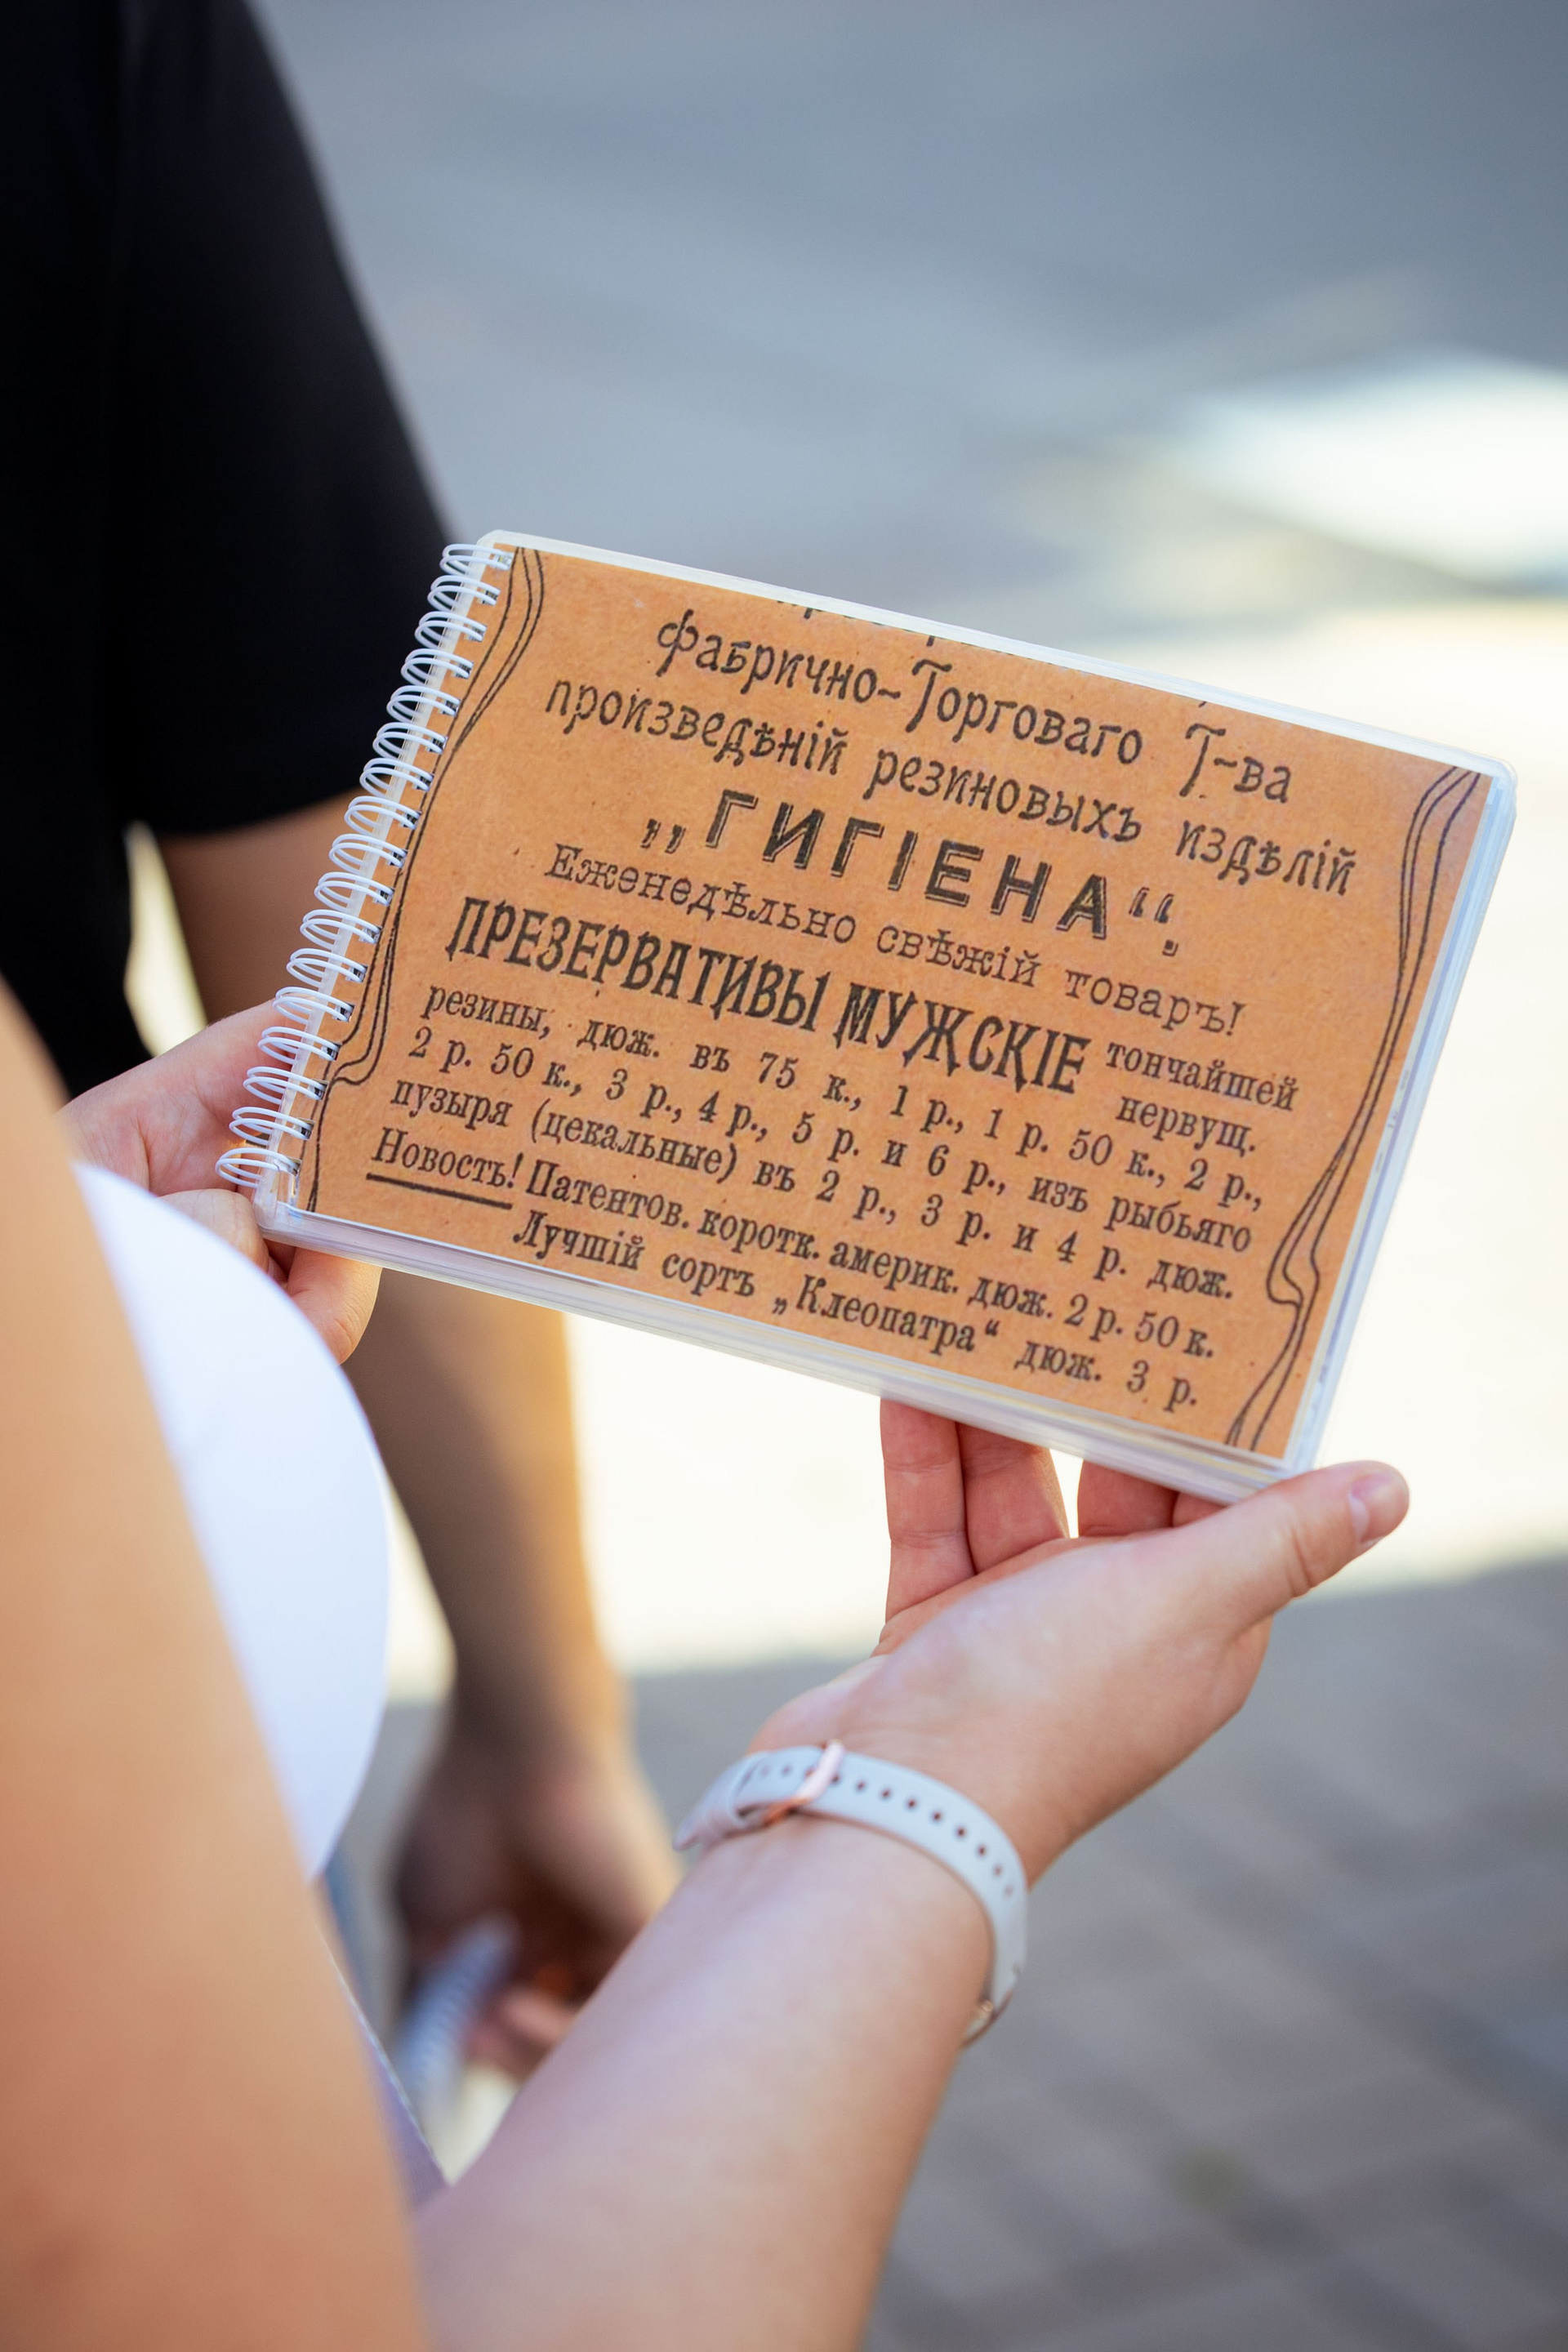 Фабрично-Торговаго Т-ва
произведѣній резиновыхъ издѣлій
„ГИГІЕНА“.
Еженедѣльно свѣжій товаръ!
ПРЕЗЕРВАТИВЫ МУЖСКІЕ тончайшей нервущ.
резины, дюж. въ 75 к., 1 р., 1 р. 50 к., 2 р.,
2 р. 50 к., 3 р., 4 р., 5 р. и 6 р., изъ рыбьяго
пузыря (цекальные) въ 2 р., 3 р. и 4 р. дюж.
Новость! Патентов. коротк. америк. дюж. 2 р. 50 к.
Лучшій сортъ „Клеопатра“ дюж. 3 р.